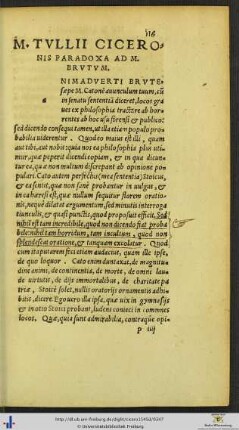 116
M. TVLLII CICERO-
NIS PARADOXA AD M.
BRVTVM.
NIMADVERTI BRVTE
sæpe M. Catonē auunculum tuum, cū
in senatu sententiā diceret, locos gra
ues ex philosophia tractare ab hor
rentes ab hoc usu forensi & publico:
sed dicendo consequi tamen, ut illa etiam populo pro=
babilia uiderentur. Quod eo maius est illi, quàm
aut tibi, aut nobis: quia nos ea philosophia plus uti=
mur, quæ peperit dicendi copiam, & in qua dicun=
tur ea, quæ non multum discrepant ab opinione po=
pulari. Cato autem perfectus (mea sententia) Stoicus,
& ea sentit, quæ non sanè probantur in uulgus, &
in ea hæresi est, quæ nullum sequitur florem oratio=
nis, neque dilatat argumentum, sed minutis interroga
tiunculis, & quasi punctis, quod proposuit efficit. Sed
nihil est tam incredibile, quod non dicendo fiat proba
bile: nihil tam horridum, tam incultum, quod non
splendescat oratione, & tanquam excolatur. Quod
cum ita putarem, feci etiam audacius, quàm ille ipse,
de quo loquor. Cato enim duntaxat, de magnitu=
dine animi, de continentia, de morte, de omni laude
uirtutis, de dijs immortalibus, de charitate pa
triæ, Stoicè solet, nullis oratorijs ornamentis adhi=
bitis, dicere. Ego uero illa ipsa, quæ uix in gymnasijs
& in otio Stoici probant, ludens conieci in communes
locos. Quæ, quia sunt admirabilia, contraque opi=
P iiij
http://dl.ub.uni-freiburg.de/diglit/cicero1545d/0247
© Universitätsbibliothek Freiburg